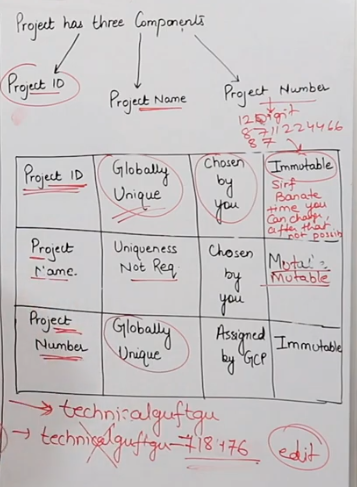 Project has three Components
Project ID
Project Name
Project Number
12 Digit
8 7 11 2 2 4 4 6 6
8 7
Project ID
Globally
Unique
Chosen
by
you
Immutable
Sirf
Banate
time you
Can change
after that
not possib
Project
Name.
Uniqueness
Not Req
Chosen
by
you
Mutable
Project
Number
Globally
Unique
Assigned
by GCP
Immutable
technicalguftgu
technicalguftgu-718476
edit